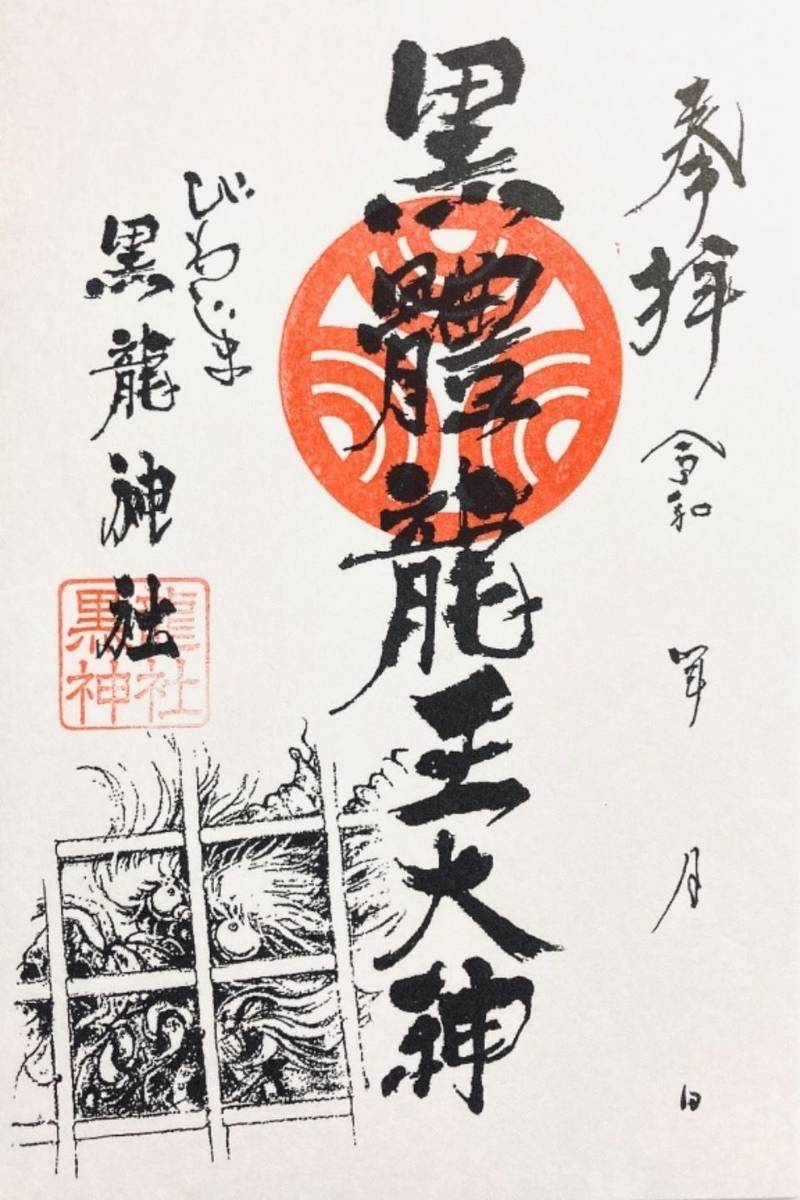 奉拝
令和 年 月 日
黒體龍王大神
びわじま
黒龍神社
黒龍
神社